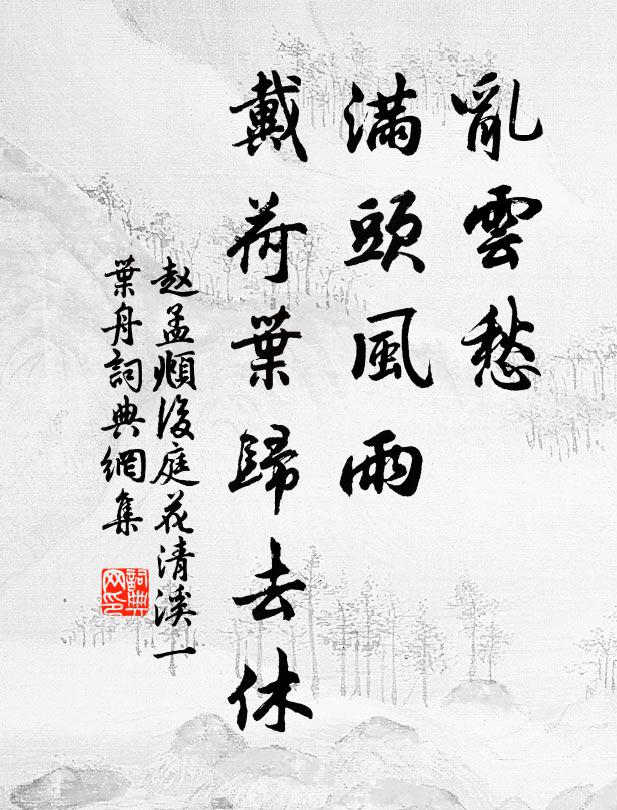 亂雲愁
滿頭風雨
戴荷葉歸去休
赵孟頫後庭花清溪一
葉舟詞典網集
詞典
网印